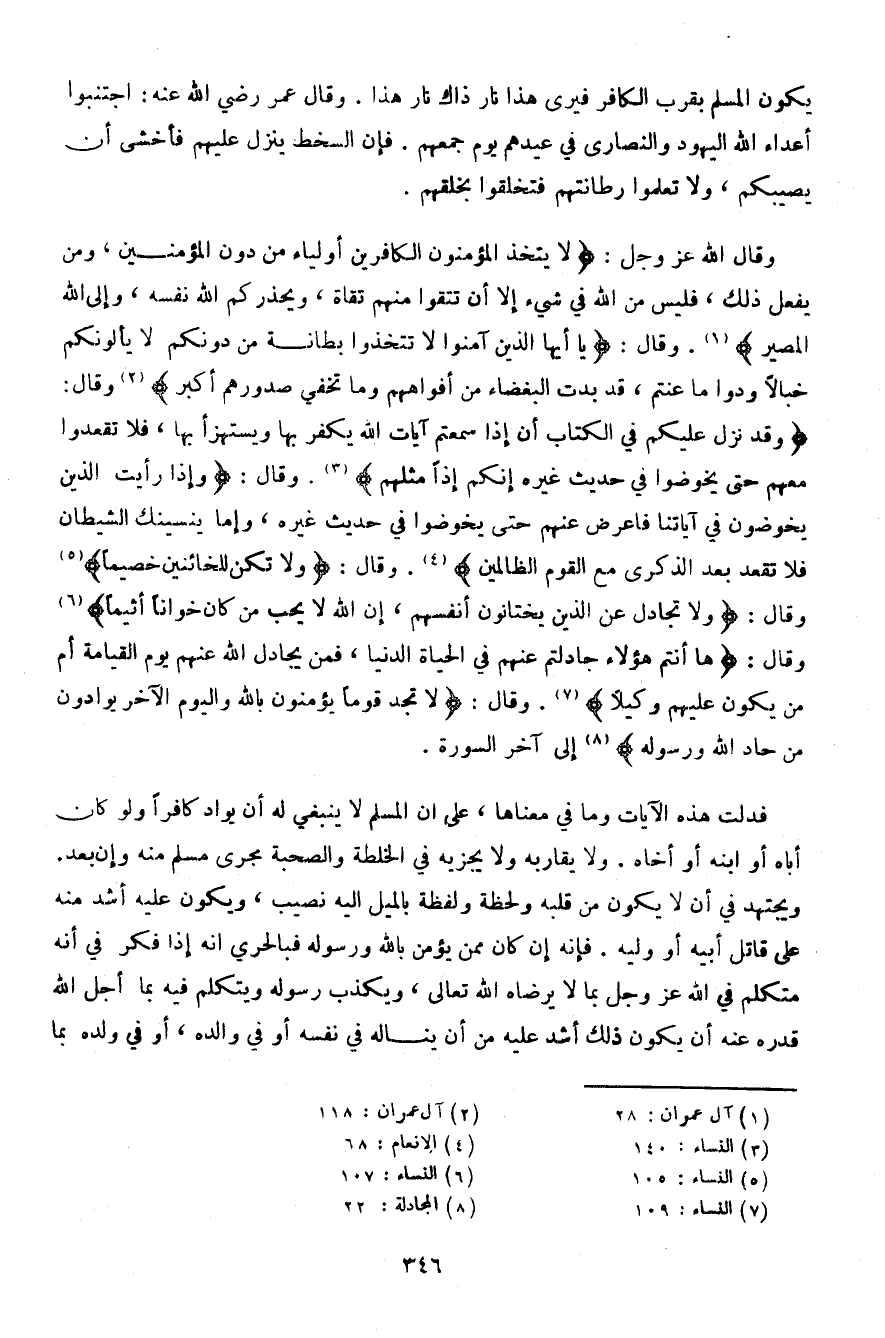 يكون المسلم بقرب الكافر فيرى هذا نار ذاك نار هذا . وقال عمر رضي الله عنه : اجتنبوا
أعداء الله اليهود والنصارى في عيدهم يوم جمعهم . فإن السخط ينزل عليهم فأخشى أن
يصيبكم ، ولا تعلموا رطانتهم فتخلقوا بخلقهم .
وقال الله عز وجل : ﴿ لا يتخذ المؤمنون الكافرين أولياء من دون المؤمنين ، ومن
يفعل ذلك ، فليس من الله في شيء إلا أن تتقوا منهم تقاة ، ويحذركم الله نفسه ، وإلى الله
المصير ﴾ (١) . وقال : ﴿ يا أيها الذين آمنوا لا تتخذوا بطانة من دونكم لا يألونكم
خبالاً ودوا ما عنتم ، قد بدت البغضاء من أفواههم وما تخفي صدورهم أكبر ﴾ (٢) وقال :
﴿ وقد نزل عليكم في الكتاب أن إذا سمعتم آيات الله يكفر بها ويستهزأ بها ، فلا تقعدوا
معهم حتى يخوضوا في حديث غيره إنكم إذاً مثلهم ﴾ (٣) . وقال : ﴿ وإذا رأيت الذين
يخوضون في آياتنا فاعرض عنهم حتى يخوضوا في حديث غيره ، وإما ينسينك الشيطان
فلا تقعد بعد الذكرى مع القوم الظالمين ﴾ (٤) . وقال : ﴿ ولا تكن للخائنين خصيماً ﴾ (٥)
وقال : ﴿ ولا تجادل عن الذين يختانون أنفسهم ، إن الله لا يحب من كان خواناً أثيماً ﴾ (٦)
وقال : ﴿ ها أنتم هؤلاء جادلتم عنهم في الحياة الدنيا ، فمن يجادل الله عنهم يوم القيامة أم
من يكون عليهم وكيلا ﴾ (٧) . وقال : ﴿ لا تجد قوماً يؤمنون بالله واليوم الآخر يوادون
من حاد الله ورسوله ﴾ (٨) إلى آخر السورة .
فدلت هذه الآيات وما في معناها ، على ان المسلم لا ينبغي له أن يواد كافراً ولو كان
أباه أو ابنه أو أخاه . ولا يقاربه ولا يجزيه في الخلطة والصحبة مجرى مسلم منه وإن بعد .
ويجتهد في أن لا يكون من قلبه ولحظة ولفظة بالميل اليه نصيب ، ويكون عليه أشد منه
على قاتل أبيه أو وليه . فإنه إن كان ممن يؤمن بالله ورسوله فبالحري انه إذا فكر في أنه
متكلم في الله عز وجل بما لا يرضاه الله تعالى ، ويكذب رسوله ويتكلم فيه بما أجل الله
قدره عنه أن يكون ذلك أشد عليه من أن يناله في نفسه أو في والده ، أو في ولده بما
(١) آل عمران : ٢٨
(٢) آل عمران : ١١٨
(٣) النساء : ١٤٠
(٤) الانعام : ٦٨
(٥) النساء : ١٠٥
(٦) النساء : ١٠٧
(٧) النساء : ١٠٩
(٨) المجادلة : ٢٢
٣٤٦